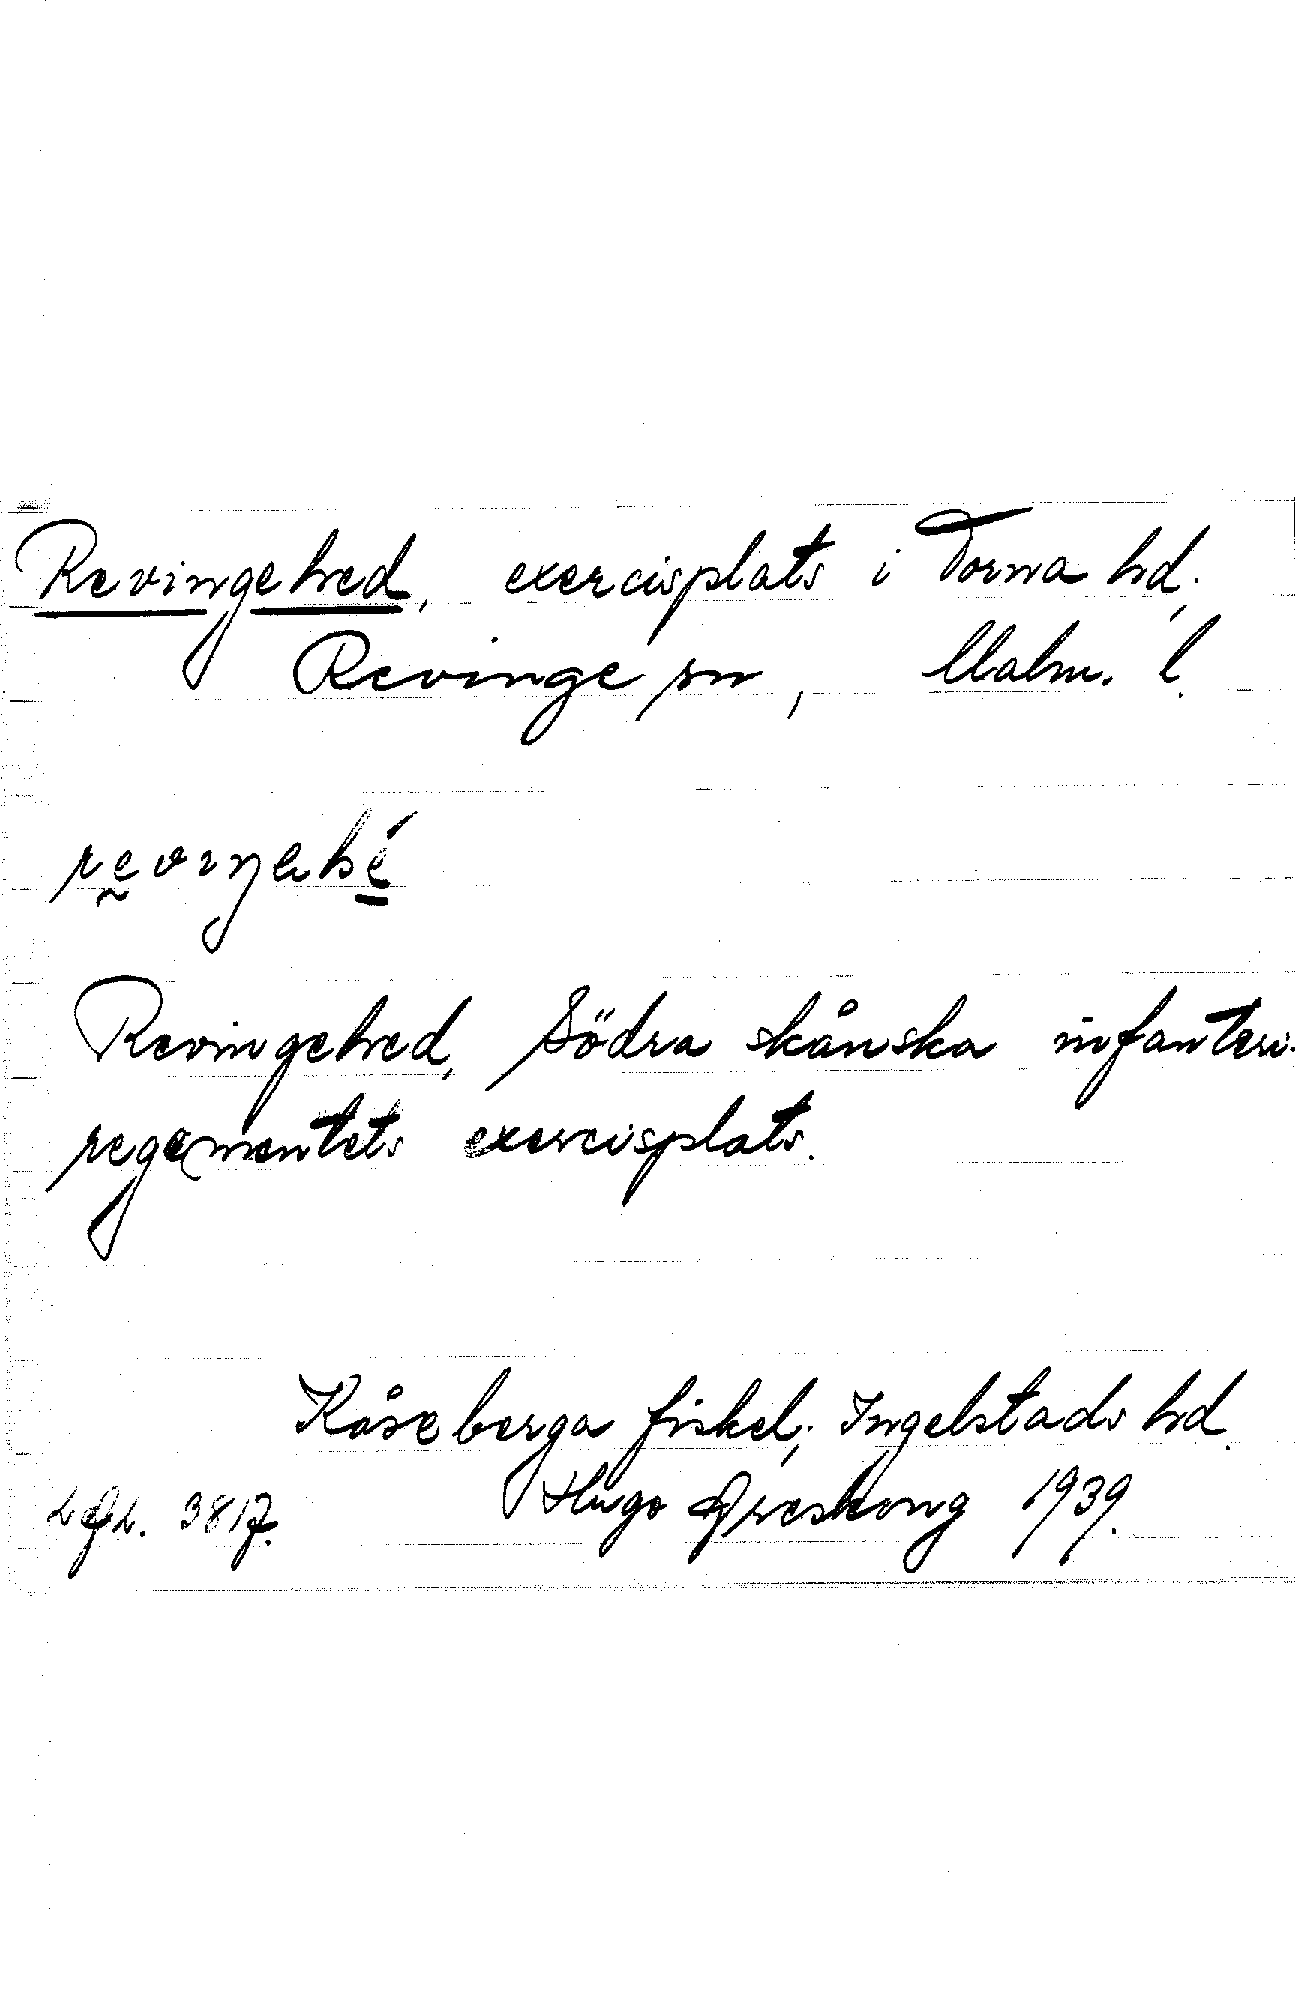 Revingehed, exercisplats i Torna hd.
Revinge sn, Malm. l.
reviŋahé
Revingehed, Södra skånska infanteri-
regementets exercisplats.
Kåseberga fiskel., Ingelstads hd.
Hugo Areskoug 1939.
3817.